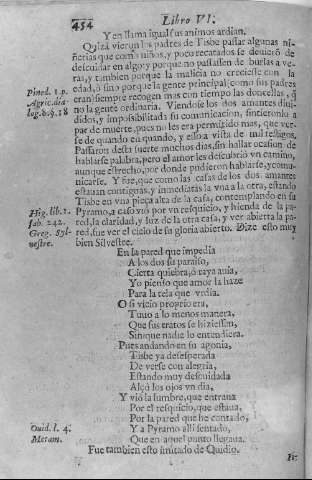 454 Libro VI.
Y en llama igual sus animos ardian.
Quizà vieron los padres de Tisbe passar algunas ni-
ñerias que como niños, y poco recatados se deuerõ de
descuidar en algo: y porque no passassen de burlas a ve-
ras, y tambien porque la malicia no creciesse con la
Pined. 1. p. edad, ò sino porque la gente principal, como sus padres
Agric. dia- eran siempre recogen mas con tiempo las donzellas, q̃
log. 6. §. 18 no la gente ordinaria. Viendose los dos amantes diui-
didos, y impossibilitada su comunicacion, sintieronlo a
par de muerte, pues no les era permitido mas, que ver-
se de quando en quando, y esso a vista de mil testigos.
Passaron desta suerte muchos dias, sin hallar ocasion de
hablarse palabra, pero el amor les descubriò vn camino,
aunque estrecho, por donde pudieron hablarse, y comu-
nicarse. Y fue, que como las casas de los dos amantes
estauan contiguas, y inmediatas la vna a la otra, estando
Tisbe en vna pieça alta de la casa, contemplando en su
Hig. lib. 1. Pyramo, a caso viò por vn resquicio, y hienda de la pa-
fab. 242. red, la claridad, y luz de la otra casa, y ver abierta la pa-
Greg. Syl- red, fue ver el cielo de su gloria abierto. Dize esto muy
uestre. bien Siluestre.
En la pared que impedia
A los dos su paraiso,
Cierta quiebra, ò raya auia,
Yo pienso que amor la haze
Para la tela que vrdia.
O si vicio proprio era,
Tuuo a lo menos manera,
Que sus tratos se hiziessen,
Sin que nadie lo entendiera.
Pues andando en su agonia,
Tisbe ya desesperada
De verse con alegria,
Estando muy descuidada
Alçò los ojos vn dia,
Y viò la lumbre, que entraua
Por el resquicio, que estaua,
Por la pared que he contado,
Ouid. l. 4. Y a Pyramo alli sentado,
Metam. Que en aquel punto llegaua.
Fue tambien esto imitado de Ouidio.